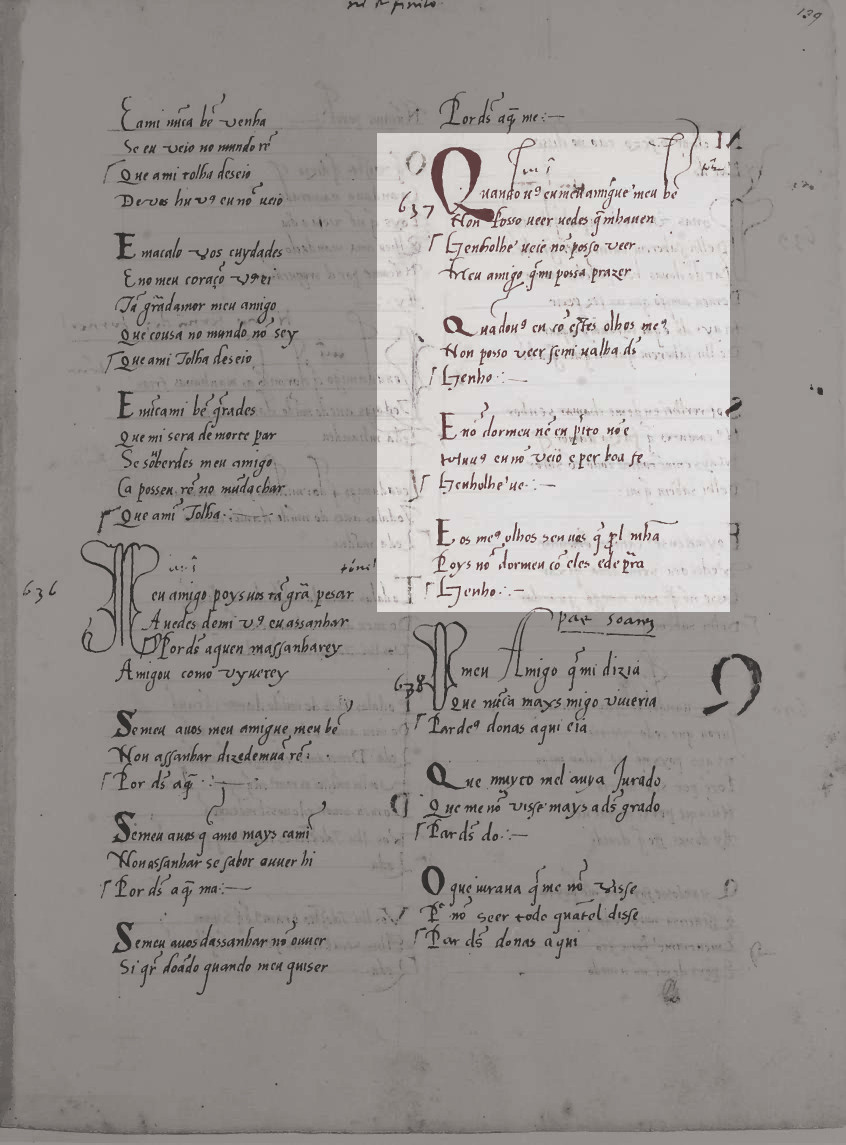 139
E ami nũca bẽ venha
Se eu veio no mundo rẽ
Que ami tolha deseio
De vos hu vꝯ eu nõ veio
E macalo vos cuydades
Eno meu coraçõ vꝯ ei
Tã grãdamor meu amigo
Que cousa no mundo nõ sey
Que ami Tolha deseio
E mẽcami bẽ grades
Que mi sera de morte par
Se soberdes meu amigo
Ca posseu rẽ no mũdachar
Que ami Tolha
636
Meu amigo poys vos tã grã pesar
Auedes demi vꝯ eu assanhar
Por ds̃ aquen massanharey
Amigou como vyuerey
Semeu auos meu amigue meu bẽ
Non assanhar dizedemuã rẽ
Por ds̃ aq̃
Semeu auos q̃ amo mays cami
Non assanhar se sabor auuer hi
Por ds̃ a q̃ ma
Semeu auos dassanhar nõ ouuer
Si qr̃ doado quando meu quiser
Por ds̃ aq̃ me
637
Quando vꝯ eu meu amigue meu bẽ
Non posso veer vedes q̃ mhauen
Tenholhe veie nõ posso veer
Meu amigo q̃ mi possa prazer
Quãdouꝯ eu cõ estes olhos meꝯ
Non posso veer semi valha ds̃
Tenho
E nõ dormeu nẽ en p̃ito nõ e
Hu uꝯ eu nõ veio e per boa fe
Tenholhe ve
E os meꝯ olhos sen uos q̃ prol mha
Poys nõ dormeu cõ eles
Tenho
pae soarez
638
O meu Amigo q̃ mi dizia
Que nũca mays migo viueria
Par deꝯ donas aqui eia
Que muyto mel auya Jurado
Que me nõ visse mays a ds̃ grado
Par ds̃ do
O que iuraua q̃ me nõ visse
Pẽ nõ seer todo quãtel disse
Par ds̃ donas aqui